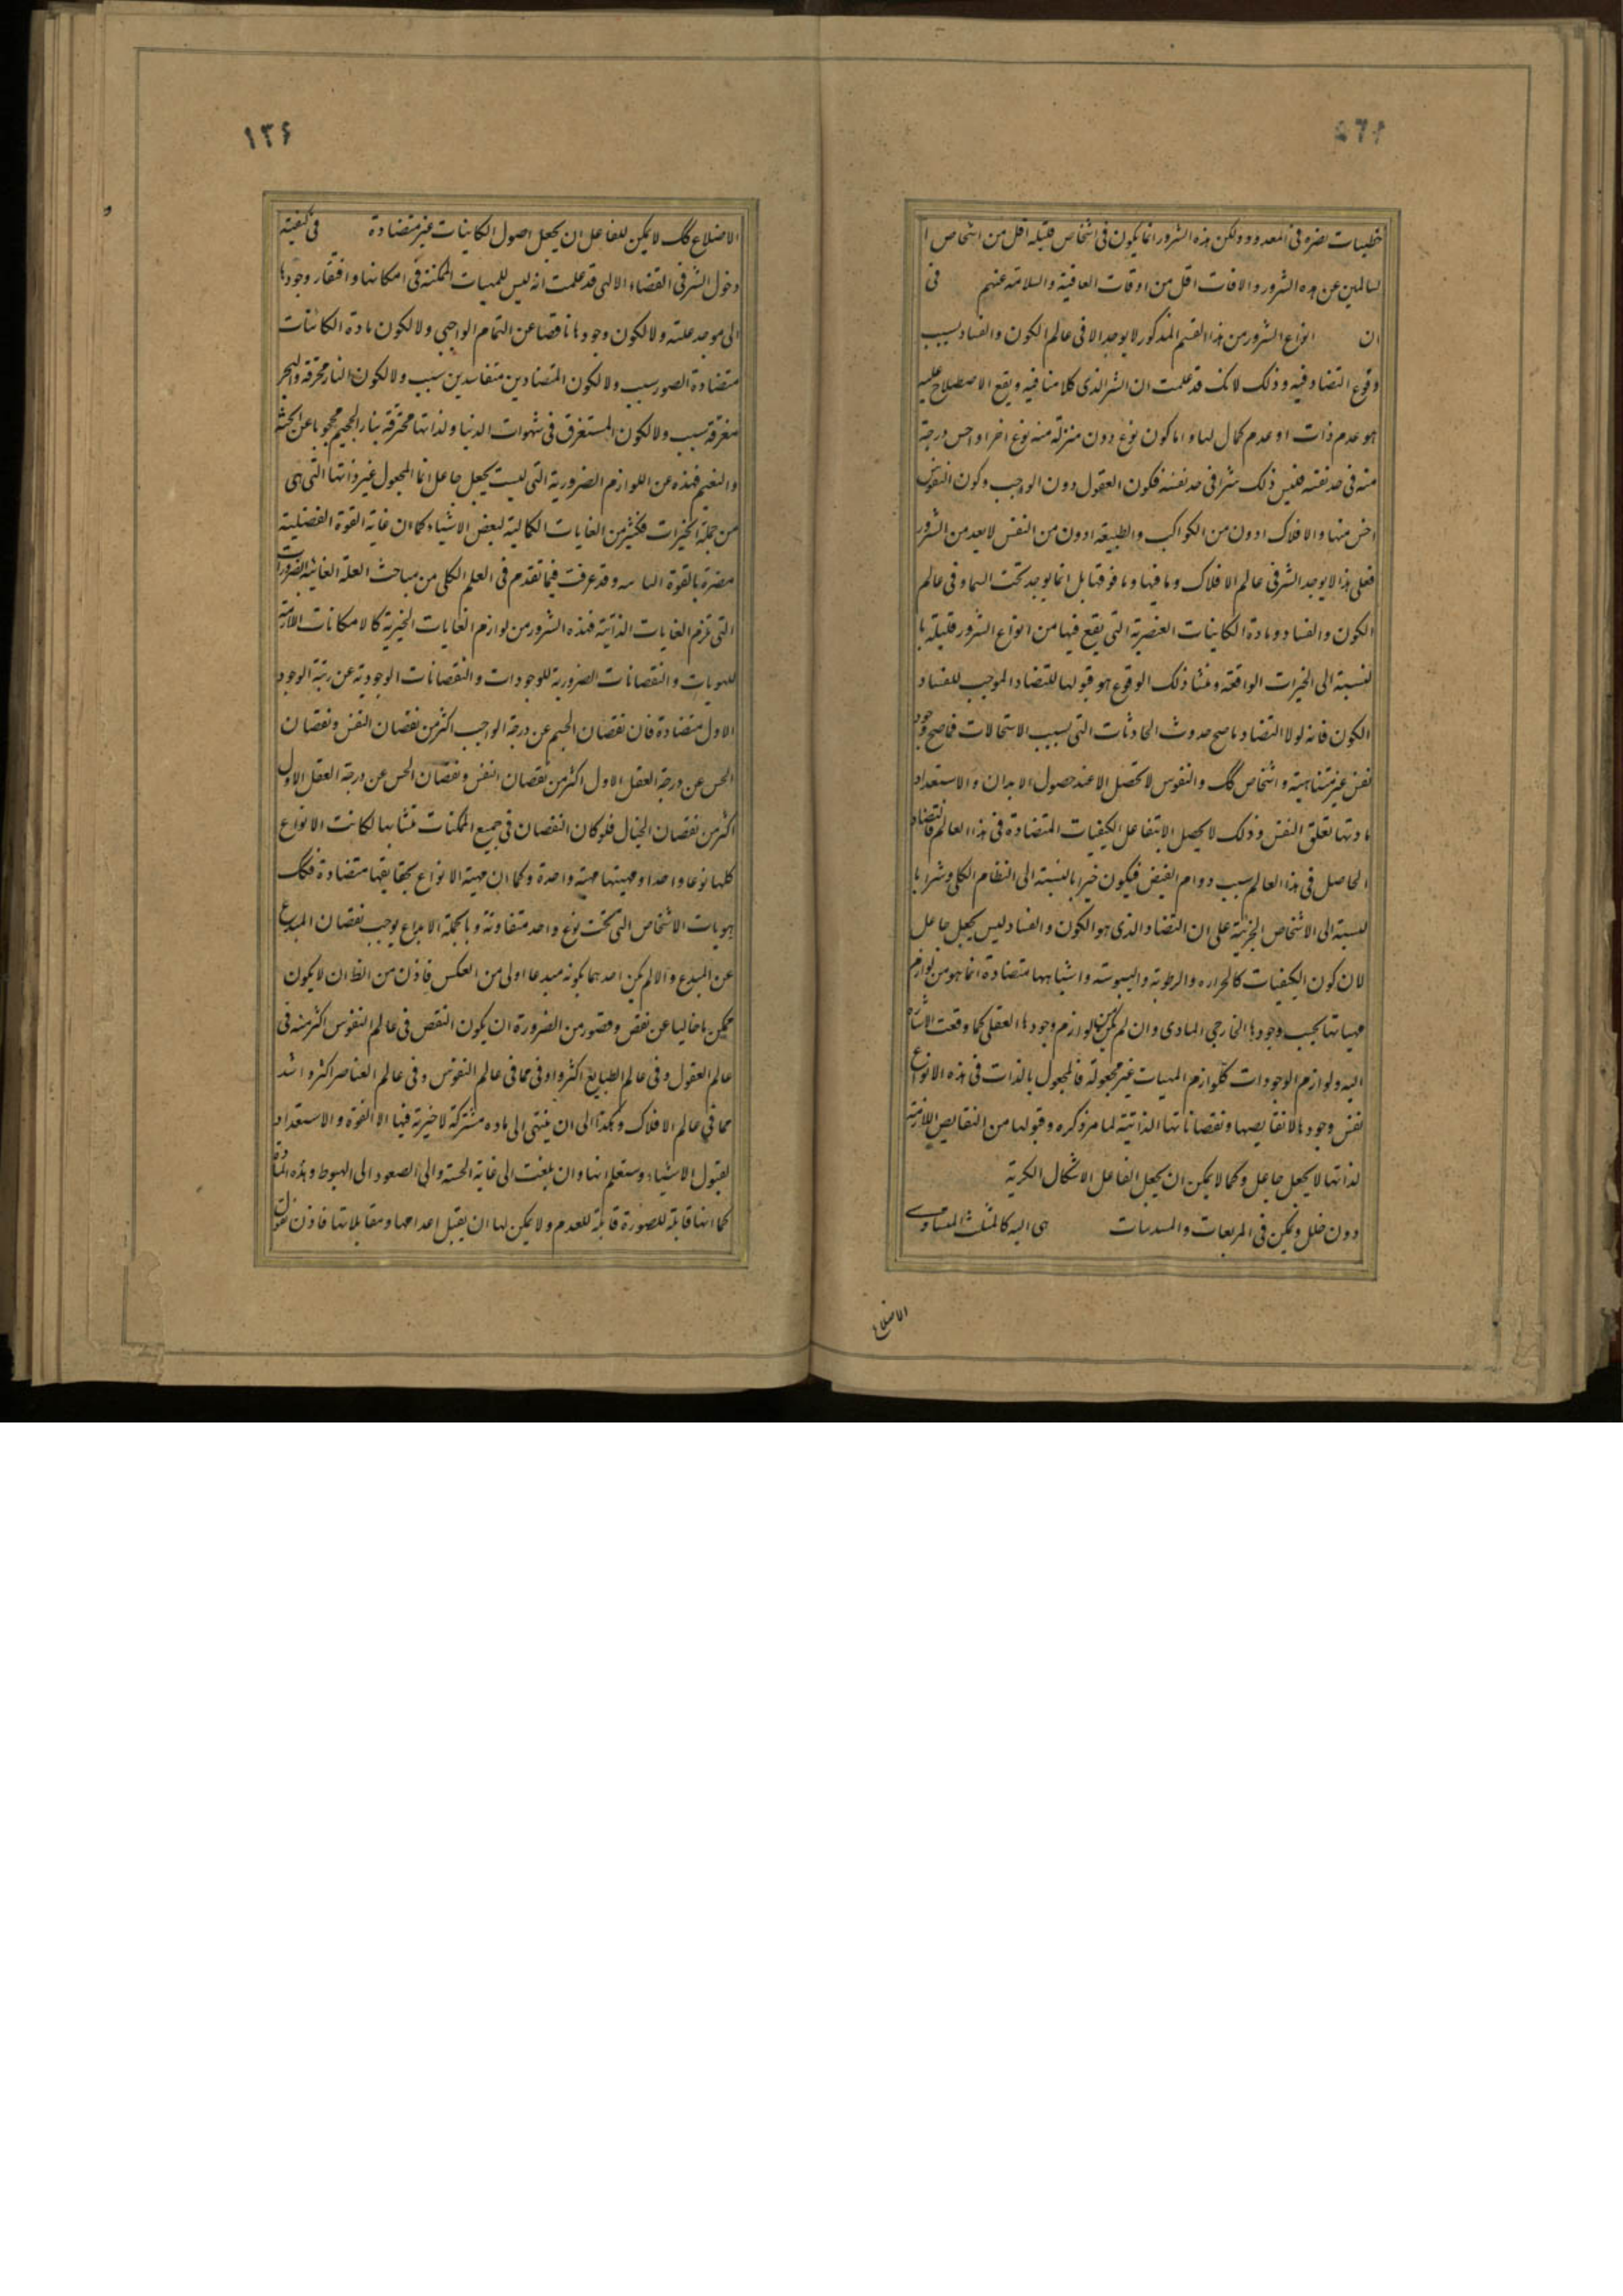 خطبيات لضره فى المعدود ولكن هذه الشرور انما يكون فى اشخاص قليلة اقل من اشخاص ا
لسالمين عن هذه الشرور والافات اقل من اوقات العافية والسلامة عنهم فى
ان انواع الشرور من هذا القسم المذكور لا يوجد الا فى عالم الكون والفساد بسبب
وقوع التضاد فيه وذلك لانك قد علمت ان الشر الذى كلامنا فيه ويقع الاصطلاح عليه
هو عدم ذات او عدم كمال لها واما كون نوع دون منزلة منه نوع اخر او اخس درجة
منه فى حد نفسه فليس ذلك شرا فى حد نفسه فكون العقول دون الواجب وكون النفوس
اخس منها والافلاك ادون من الكواكب والطبيعة ادون من النفس لا يعد من الشرور
فعلى هذا لا يوجد الشر فى عالم الافلاك وما فيها وما فوقها بل انما يوجد تحت السماء وفى عالم
الكون والفساد ومادة الكاينات العنصرية التى يقع فيها من انواع الشرور قليلة با
لنسبة الى الخيرات الواقعة ومنشا ذلك الوقوع هو قبولها للتضاد الموجب للفساد
الكون فانه لولا التضاد ما صح حدوث الحادثات التى بسبب الاستحالات فما صح وجود
نفس غير متناهية واشخاص كك والنفوس لا تحصل الا عند حصول الابدان والاستعداد
مادتها لتعلق النفس وذلك لا يحصل الا بتفاعل الكيفيات المتضادة فى هذا العالم فالتضاد
الحاصل فى هذا العالم سبب دوام الفيض فيكون خيرا بالنسبة الى النظام الكلى وشرا با
لنسبة الى الاشخاص الجزئية على ان التضاد الذى هو الكون والفساد ليس بجعل جاعل
لان كون الكيفيات كالحراره والرطوبة واليبوسته واشباهها متضادة انما هو من لوازم
مهياتها بحسب وجودها الخارجى المادى وان لم يكن لوازم وجودها العقلى كما وقعت الاشارة
اليه ولوازم الوجودات كلوازم المهيات غير مجعولة فالمجعول بالذات فى هذه الانواع
نفس وجودها لا نقايصها ونقصاناتها الذاتية لما مر ذكره وقبولها من النقايص اللازمة
لذاتها لا بجعل جاعل وكما لا يمكن ان يجعل الفاعل الاشكال الكرية
دون خلل ويمكن فى المربعات والمسدسات هى اليه كالمثلث المتساوى
الاضلاع
١٣۶
الاضلاع كك لا يمكن للفاعل ان يجعل اصول الكاينات غير متضادة فى كيفية
دخول الشر فى القضاء الالهى قد علمت انه ليس للمهيات الممكنة فى امكانها وافتقار وجودها
الى موجد علته ولا لكون وجودها ناقصا عن التمام الواجبى ولا لكون مادة الكائنات
متضادة الصور سبب ولا لكون المتضادين متفاسدين سبب ولا لكون النار محرقة والبحر
مغرقة سبب ولا لكون المستغرق فى شهوات الدنيا ولذاتها محترقة بنار الجحيم محجوبا عن الجنة
والنعيم فهذه عن اللوازم الضرورية التى ليست بجعل جاعل انما المجعول غير ذاتها التى هى
من جملة الخيرات فكثير من الغايات الكمالية لبعض الاشياء كما ان غاية القوة الغضبية
مضرة بالقوة وقد عرفت فيما تقدم فى العلم الكلى من مباحث العلة الغائية الضرورات
التى تلزم الغايات الذاتية فهذه الشرور من لوازم الغايات الخيرية كالامكانات اللازمة
للهويات والنقصانات الضرورية للوجودات والنقصانات الوجودية عن رتبة الوجود
الاول متضادة فان نقصان الجسم عن درجة الواجب اكثر من نقصان النفس ونقصان
الحس عن درجة العقل الاول اكثر من نقصان النفس ونقصان الحس عن درجة العقل الاول
اكثر من نقصان الخيال فلو كان النقصان فى جميع الممكنات متشابها لكانت الانواع
كلها نوعا واحدا ومهيتها مهية واحدة وكما ان مهية الانواع بحقايقها متضادة فكك
هويات الاشخاص التى تحت نوع واحد متفاوتة وبالجملة الابداع يوجب نقصان المبدع
عن المبدع والا لم يكن احدهما بكونه مبدعا اولى من العكس فاذن من الظ ان لا يكون
ممكن ما خاليا عن نقص وقصور من الضرورة ان يكون النقص فى عالم النفوس اكثر منه فى
عالم العقول وفى عالم الطبايع اكثر واوفى مما فى عالم النفوس وفى عالم العناصر اكثر واشد
مما فى عالم الافلاك وهكذا الى ان ينتهى الى ماده مشتركة لا خيرية فيها الا القوة والاستعداد
لقبول الاشياء وستعلم انها وان بلغت الى غاية الخسة والى الصعود الى الهبوط وهذه المادة
كما انها قابلة للصورة قابلة للعدم ولا يمكن لها ان يقبل اعدامها ومقابلاتها فاذن نقول